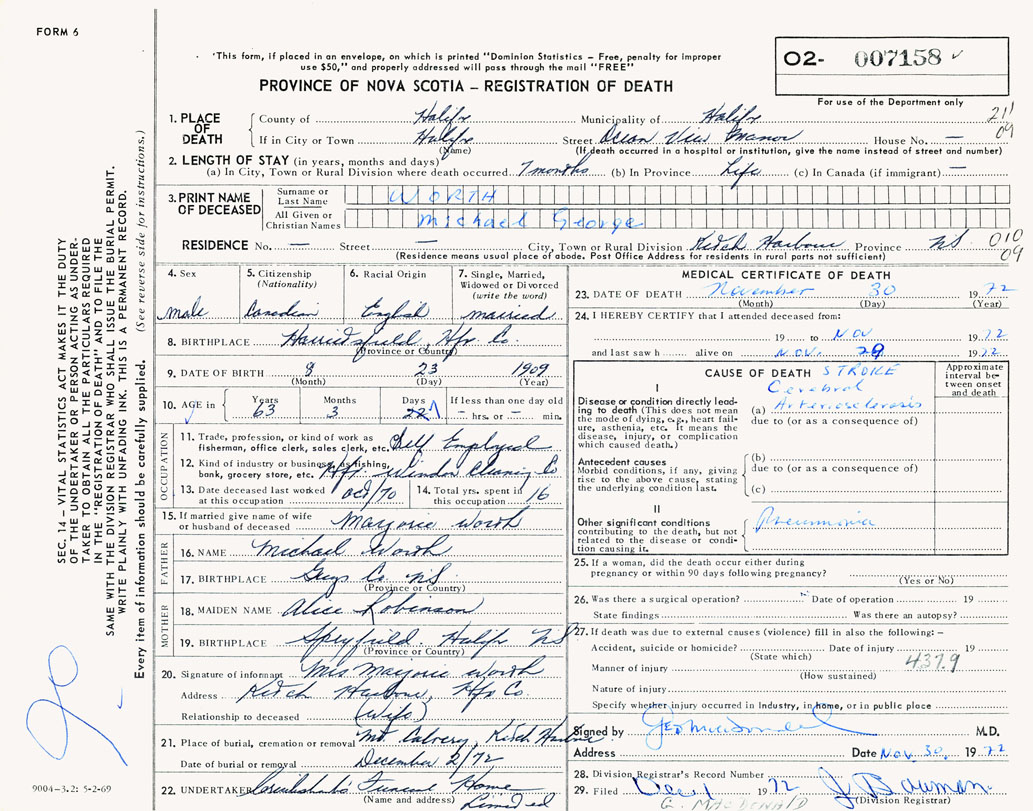 FORM 6
'This form, if placed in an envelope, on which is printed "Dominion Statistics – Free, penalty for improper
use $50," and properly addressed will pass through the mail "FREE"
O2- 007158
PROVINCE OF NOVA SCOTIA – REGISTRATION OF DEATH
For use of the Department only
1. PLACE OF DEATH County of Halifx Municipality of Halifx 211
If in City or Town Halifx Street Ocean View Manor House No. — 09
(Name) (If death occurred in a hospital or institution, give the name instead of street and number)
2. LENGTH OF STAY (in years, months and days)
(a) In City, Town or Rural Division where death occurred 7 months (b) In Province Life (c) In Canada (if immigrant) —
3. PRINT NAME OF DECEASED Surname or Last Name WORTH
All Given or Christian Names Michael George
RESIDENCE No. — Street — City, Town or Rural Division Ketch Harbour Province NS 010
(Residence means usual place of abode. Post Office Address for residents in rural parts not sufficient) 09
4. Sex 5. Citizenship (Nationality) 6. Racial Origin 7. Single, Married, Widowed or Divorced (write the word)
male Canadian English married
8. BIRTHPLACE Harrietsfield, Hfx Co.
(Province or Country)
9. DATE OF BIRTH 8 23 1909
(Month) (Day) (Year)
10. AGE in Years Months Days If less than one day old
63 3 — hrs. or — min.
OCCUPATION
11. Trade, profession, or kind of work as fisherman, office clerk, sales clerk, etc. Self Employed
12. Kind of industry or business, as fishing, bank, grocery store, etc. Hfx. Window Cleaning Co
13. Date deceased last worked at this occupation Oct/70 14. Total yrs. spent in this occupation 16
15. If married give name of wife or husband of deceased Marjorie Worth
FATHER
16. NAME Michael Worth
17. BIRTHPLACE Guys Co. NS
(Province or Country)
MOTHER
18. MAIDEN NAME Alice Robinson
19. BIRTHPLACE Spryfield. Halifx NS
(Province or Country)
20. Signature of informant Mrs Marjorie Worth
Address Ketch Harbour, Hfx Co.
Relationship to deceased (Wife)
21. Place of burial, cremation or removal Mt Calvery, Ketch Harbour
Date of burial or removal December 2/72
22. UNDERTAKER Funeral Home
(Name and address) Limited
MEDICAL CERTIFICATE OF DEATH
23. DATE OF DEATH November 30 1972
(Month) (Day) (Year)
24. I HEREBY CERTIFY that I attended deceased from:
19 to NOV 1972
and last saw h alive on NOV. 29 1972
CAUSE OF DEATH STROKE
Approximate interval between onset and death
I
Cerebral
Disease or condition directly leading to death (This does not mean the mode of dying, e.g., heart failure, asthenia, etc. It means the disease, injury, or complication which caused death.)
(a) Arteriosclerosis
due to (or as a consequence of)
Antecedent causes
Morbid conditions, if any, giving rise to the above cause, stating the underlying condition last.
(b)
due to (or as a consequence of)
(c)
II
Other significant conditions contributing to the death, but not related to the disease or condition causing it.
Pneumonia
25. If a woman, did the death occur either during
pregnancy or within 90 days following pregnancy?
(Yes or No)
26. Was there a surgical operation? Date of operation 19
State findings Was there an autopsy?
27. If death was due to external causes (violence) fill in also the following: –
Accident, suicide or homicide? Date of injury 19
(State which) 437.9
Manner of injury
(How sustained)
Nature of injury
Specify whether injury occurred in Industry, in home, or in public place
Signed by M.D.
Address Date Nov. 30, 1972
28. Division Registrar's Record Number
29. Filed Dec 1 1972 J. Bauman
G. MACDONALD (Division Registrar)
SEC. 14 – VITAL STATISTICS ACT MAKES IT THE DUTY
OF THE UNDERTAKER OR PERSON ACTING AS UNDER-
TAKER TO OBTAIN ALL THE PARTICULARS REQUIRED
IN THE "REGISTRATION OF DEATH" AND TO FILE THE
SAME WITH THE DIVISION REGISTRAR WHO SHALL ISSUE THE BURIAL PERMIT.
WRITE PLAINLY WITH UNFADING INK. THIS IS A PERMANENT RECORD.
Every item of information should be carefully supplied. (See reverse side for instructions.)
9004-3.2: 5-2-69